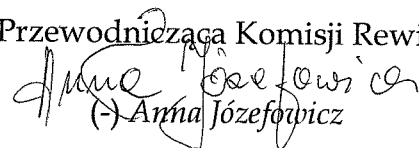 Przewodnicząca Komisji Rewi
Anna Józefowicz
(-) Anna Józefowicz